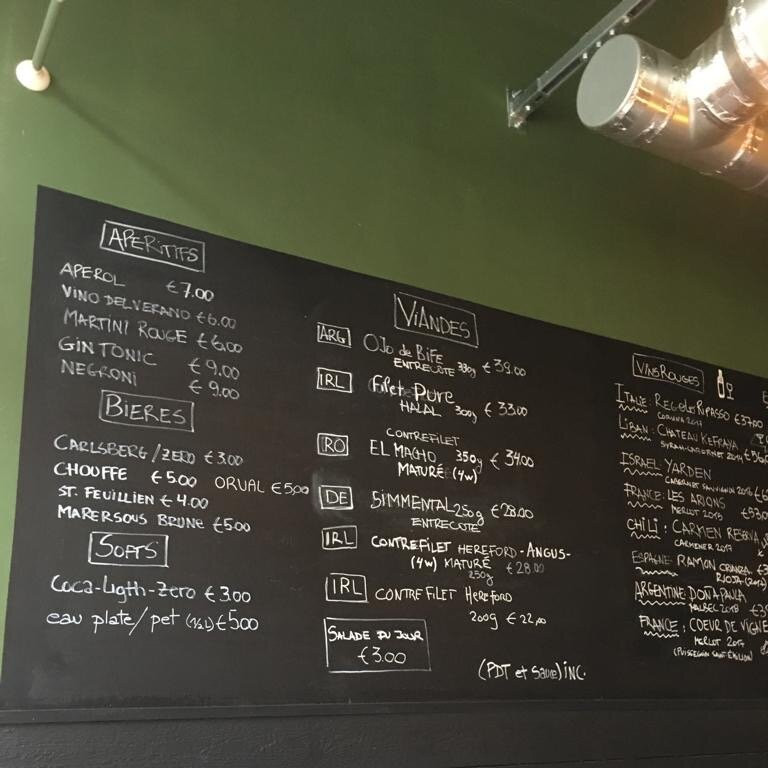 APERITIFS
APEROL €7.00
VINO DEL VERANO €6.00
MARTINI ROUGE €6.00
GIN TONIC €9.00
NEGRONI €9.00
BIERES
CARLSBERG/ZERO €3.00
CHOUFFE €5.00 ORVAL €5,00
ST. FEUILLIEN €4.00
MARERSOUS BRUNE €5.00
SOFTS
Coca-Ligth-Zero €3.00
eau plate/pet (1/2L) €5.00
VIANDES
ARG OJO de BIFE
ENTRECOTE 330g €39.00
IRL Filet Pure
HALAL 300g €33.00
CONTREFILET
RO EL MACHO 350g €34.00
MATURÉ (4w)
DE SIMMENTAL 250g €28.00
ENTRECOTE
IRL CONTREFILET HEREFORD-ANGUS-
(4w) MATURÉ €28.00
250g
IRL CONTREFILET HEREFORD
200g €22,00
SALADE DU JOUR
€3.00
(PDT et Sauce) INC.
VINS ROUGES
ITALIE: REGOLO RIPASSO €37.00
LIBAN: CHATEAU KEFRAYA
ISRAEL YARDEN
CABERNET SAUVIGNON 2016
FRANCE: LES ARJONS
MERLOT 2015
CHILI: CARMEN RESERVA
CARMENER 2017
ESPAGNE: RAMON
RIOJA (2017)
ARGENTINE DOÑA PAULA
MALBEC 2018
FRANCE: COEUR DE VIGNE
MERLOT 2017
(PUISSEGUIN SAINT-ÉMILION)